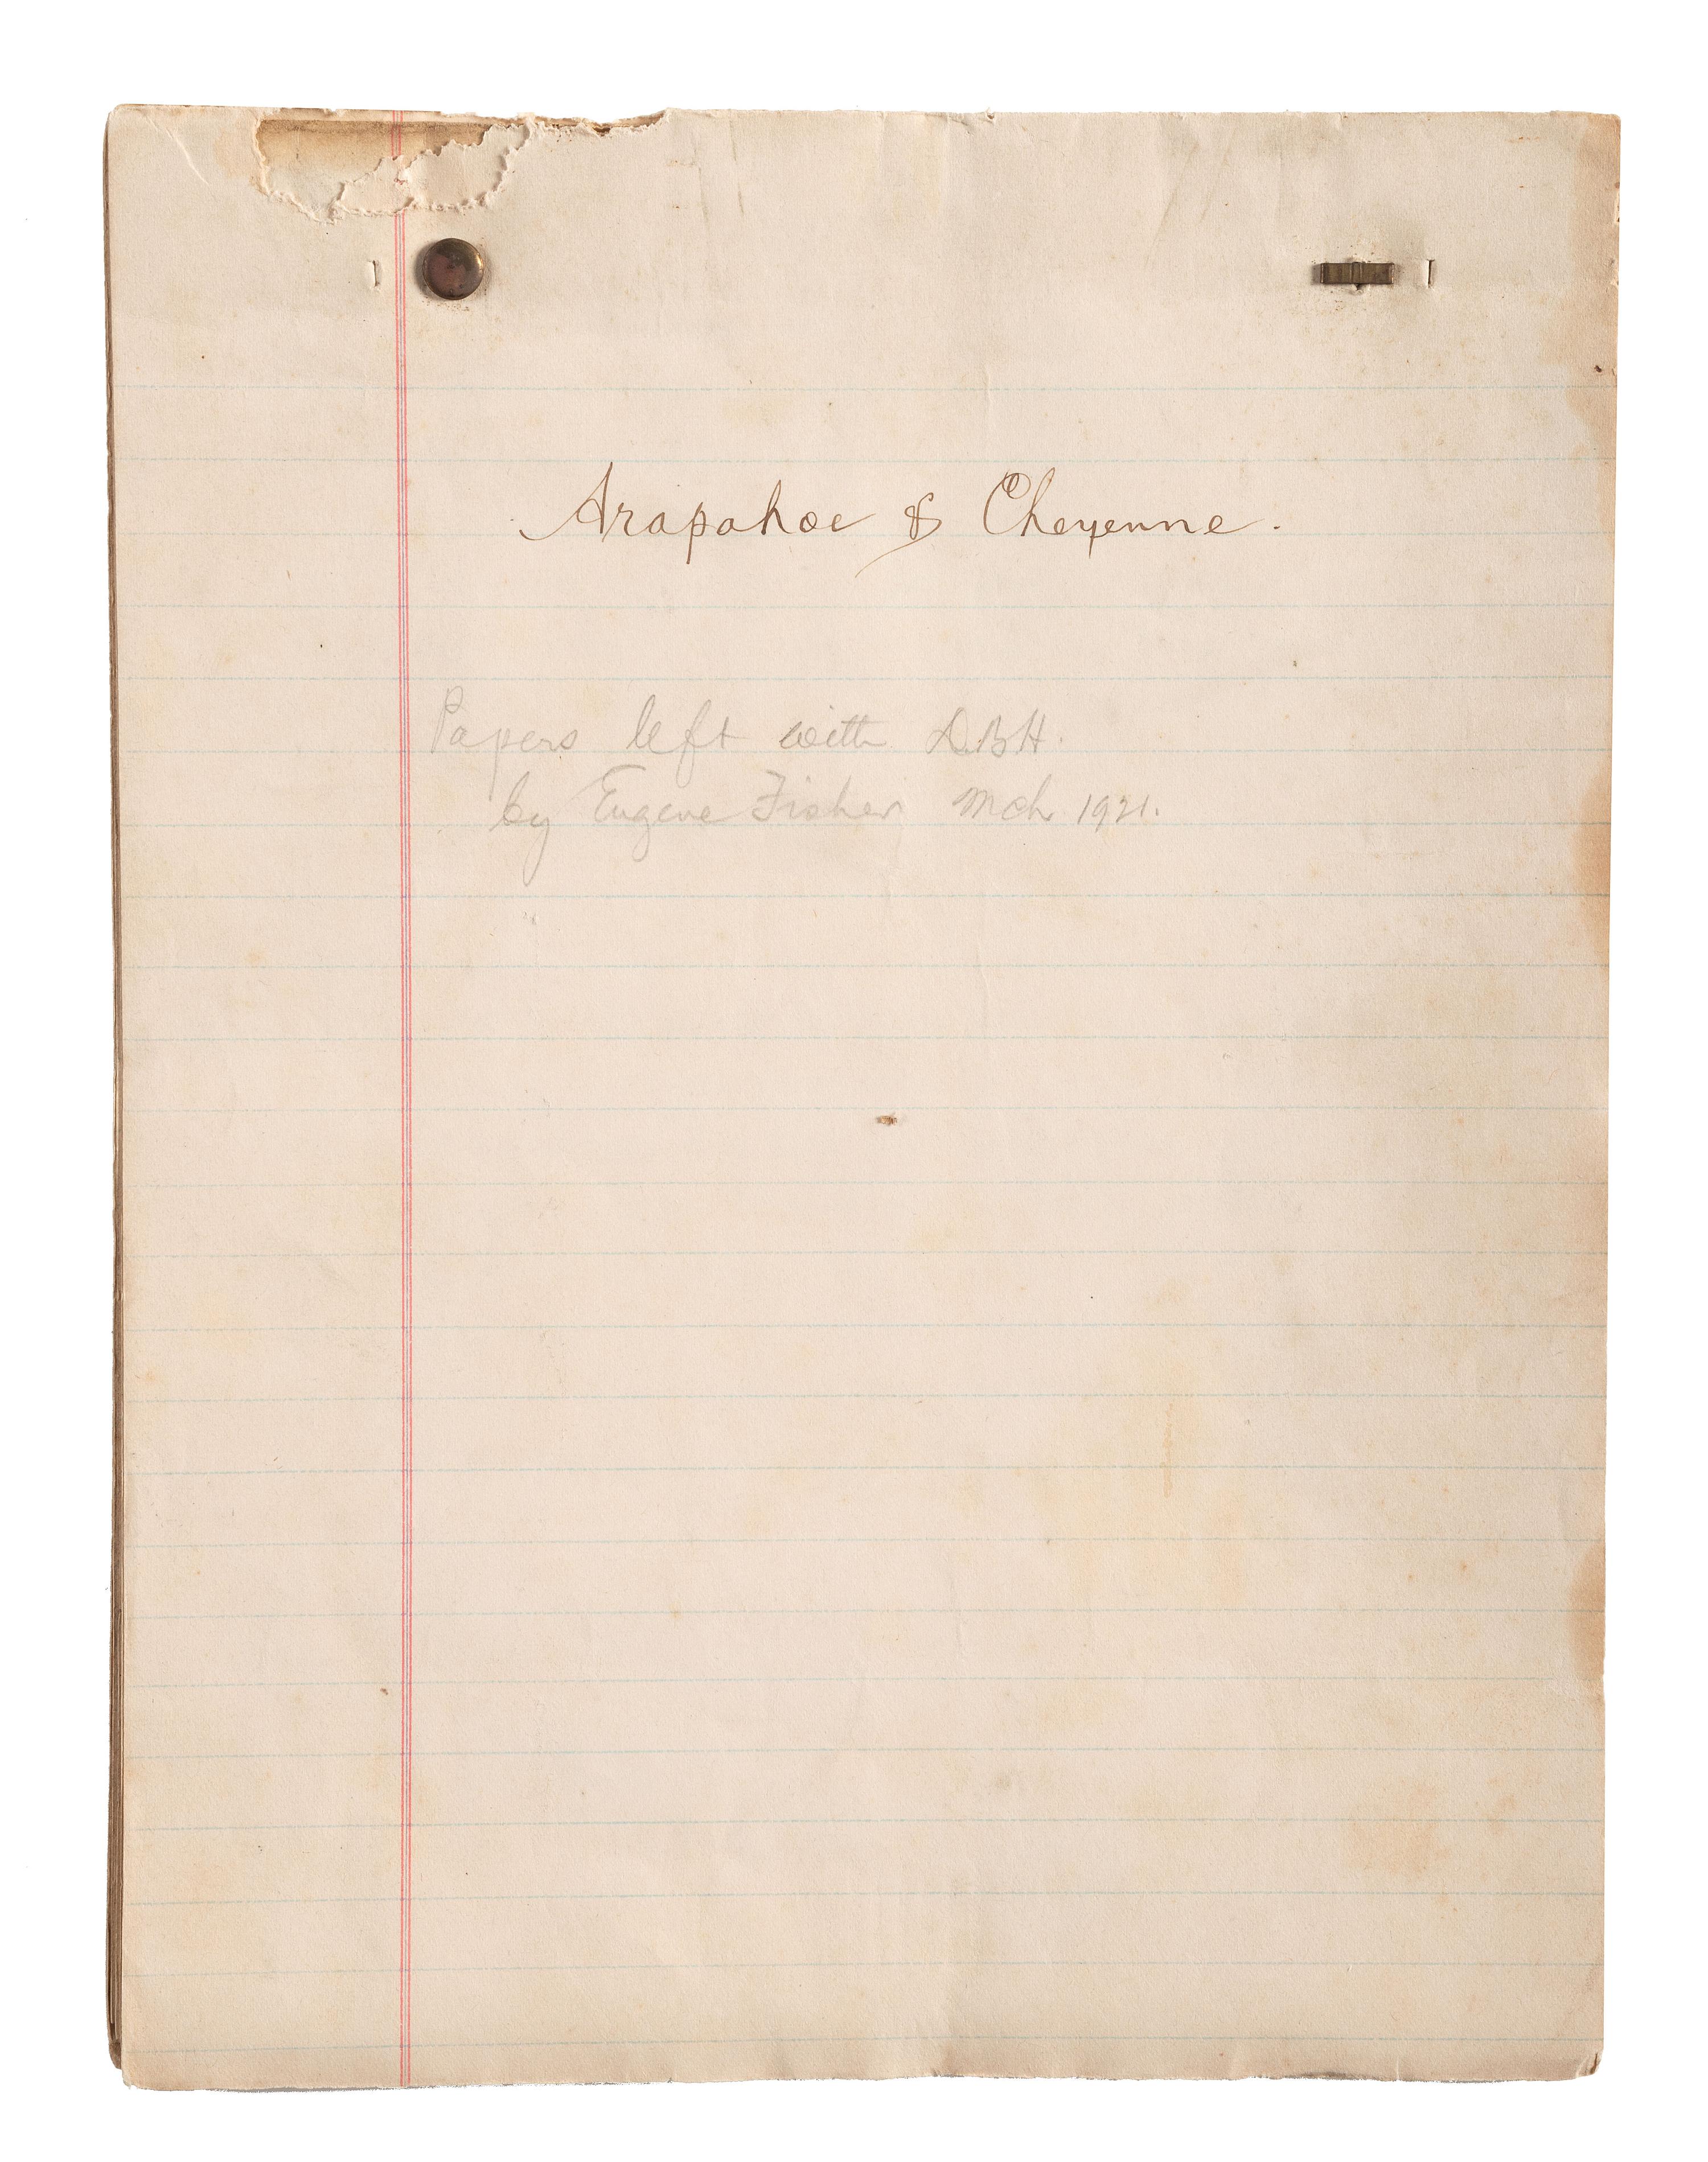 Arapahoe & Cheyenne.
Papers left with D.B.H.
by Eugene Fisher Mch 1921.